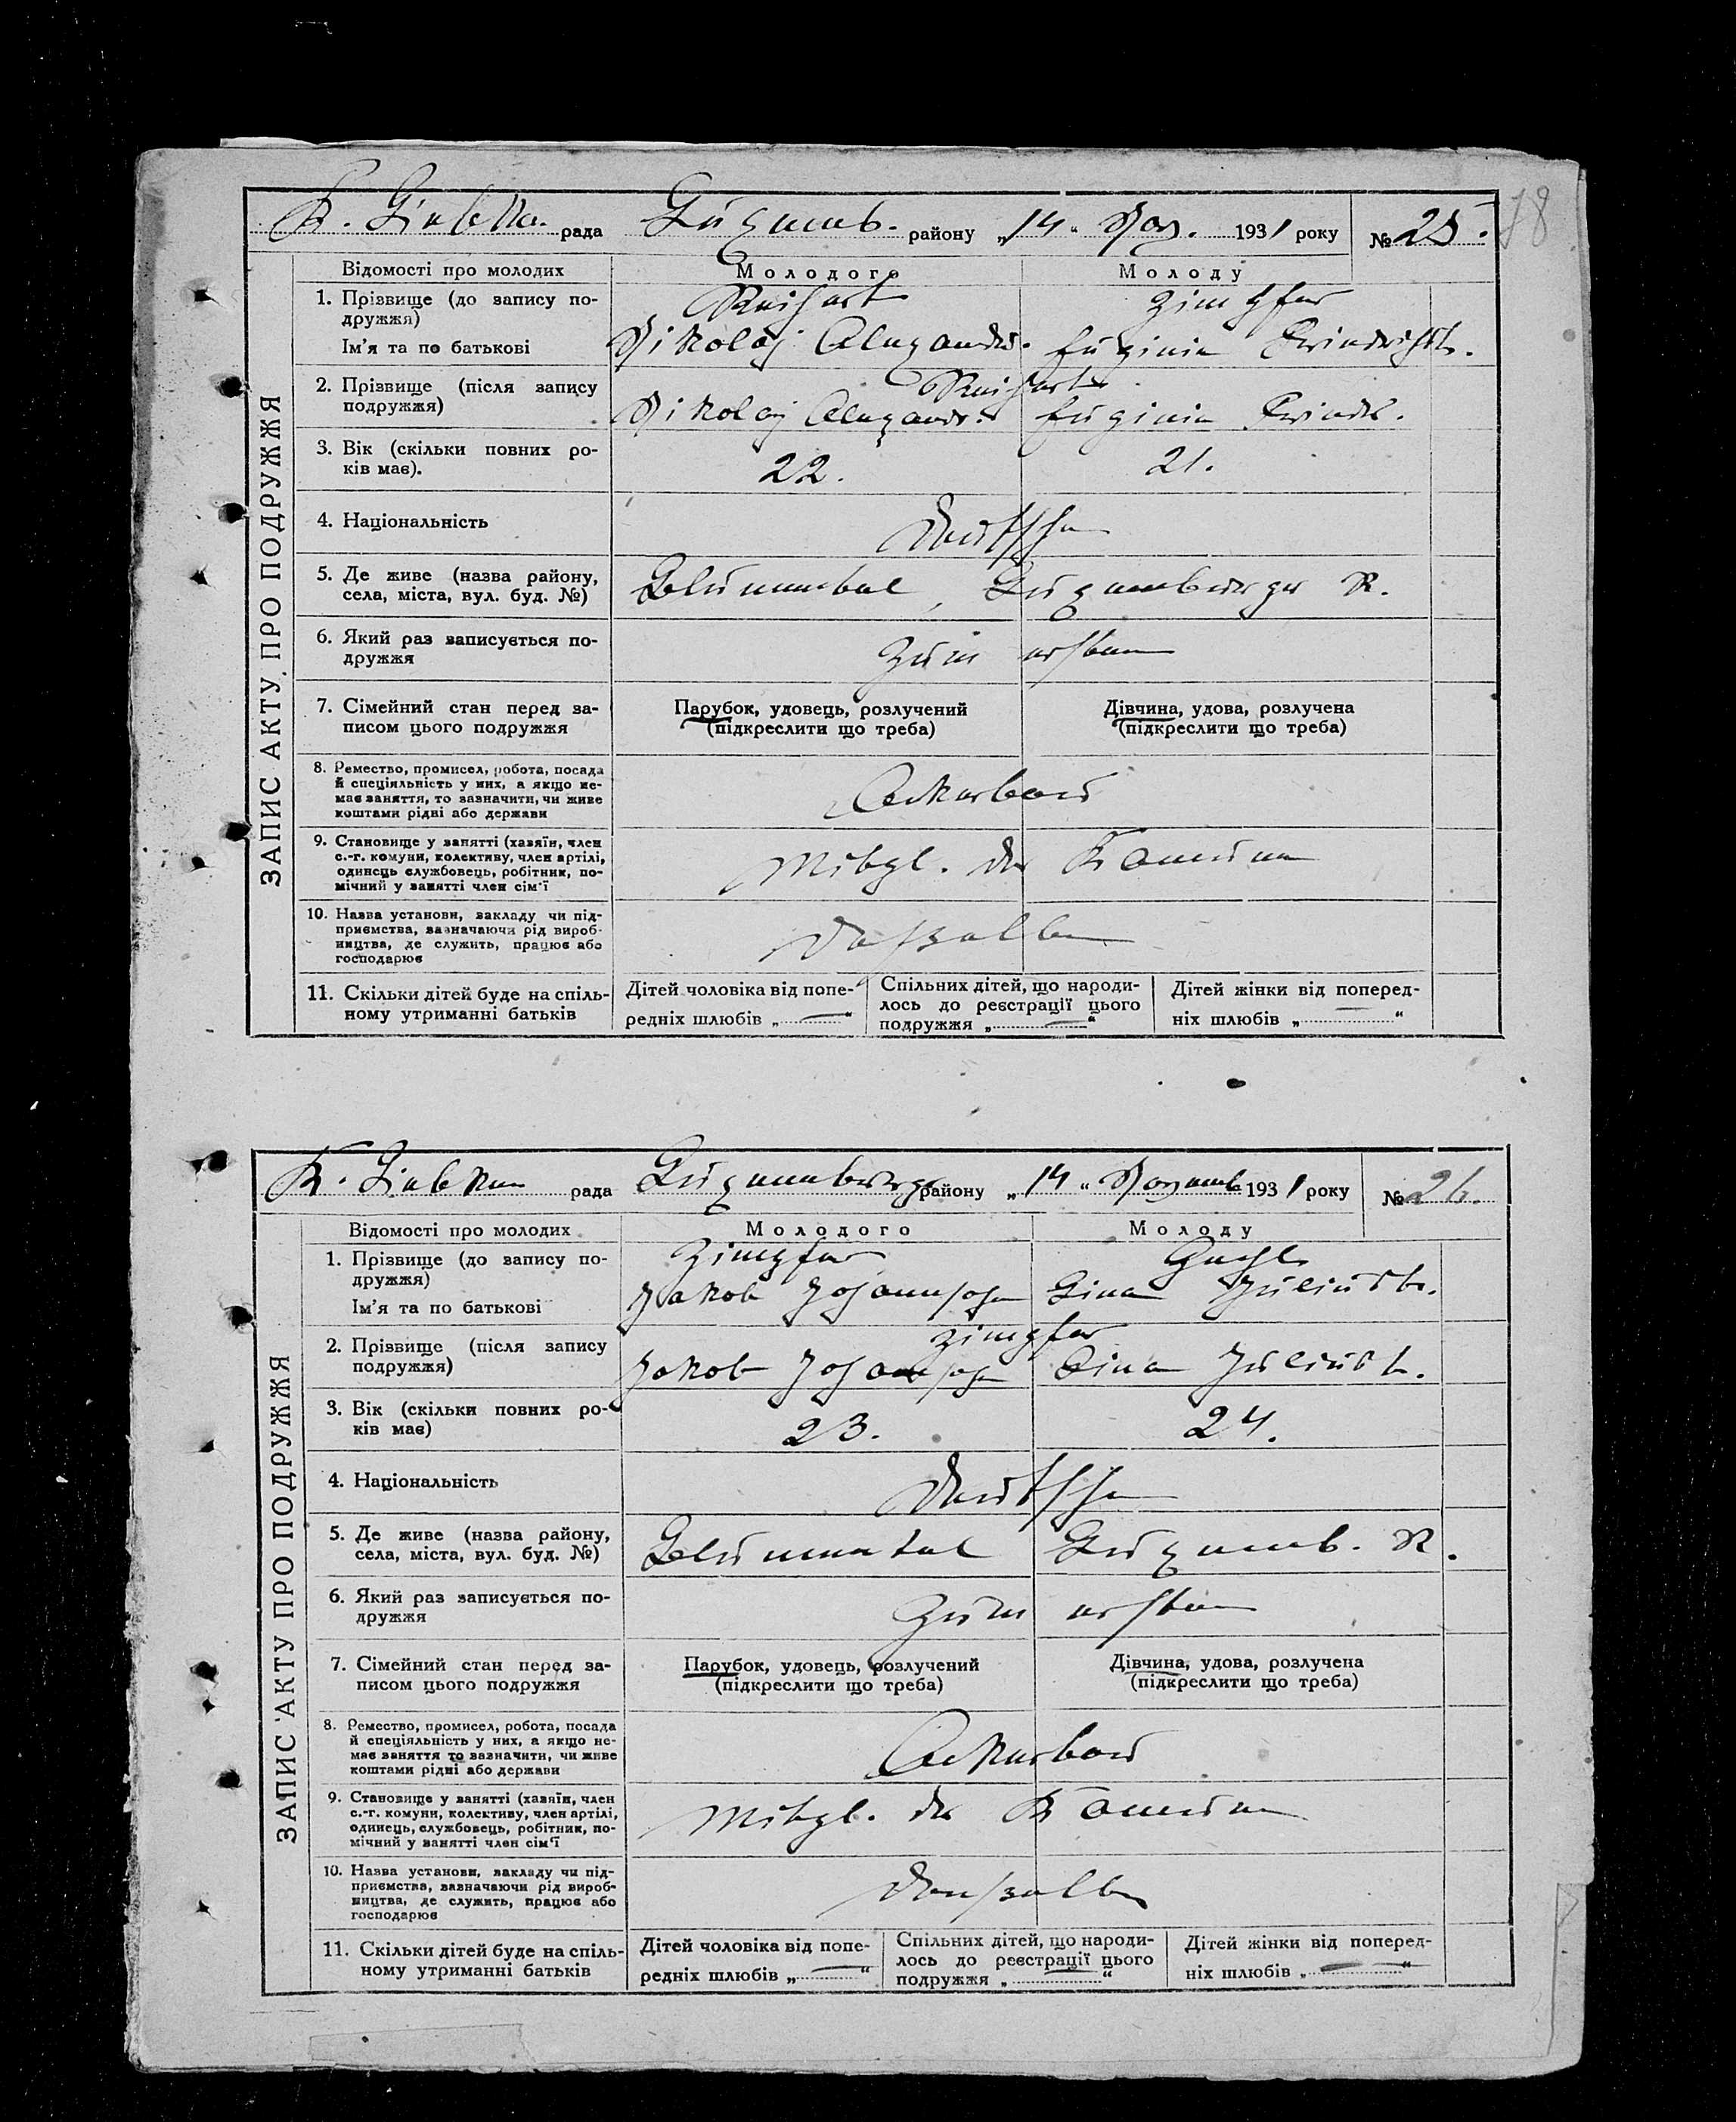 78
K. Liebkn. рада Luxemb. району „14“ Nov. 1931 року № 25.
ЗАПИС АКТУ ПРО ПОДРУЖЖЯ
Відомості про молодих Молодого Молоду
1. Прізвище (до запису по-
дружжя) Zimpfer
Ім'я та по батькові Nikolaj Alexandr. Eugenie Friedricht.
2. Прізвище (після запису
подружжя) Nikolaj Alexandr. Eugenie Friedr.
3. Вік (скільки повних ро-
ків має). 22. 21.
4. Національність Deutsche
5. Де живе (назва району,
села, міста, вул. буд. №) Blumental, Luxemburger R.
6. Який раз записується по-
дружжя zum ersten
7. Сімейний стан перед за-
писом цього подружжя
Парубок, удовець, розлучений
(підкреслити що треба)
Дівчина, удова, розлучена
(підкреслити що треба)
8. Ремество, промисел, робота, посада
й спеціяльність у них, а якщо не-
має заняття, то зазначити, чи живе
коштами рідні або держави
Ackerbau
9. Становище у занятті (хазяїн, член
с.-г. комуни, колективу, член артілі,
одинець службовець, робітник, по-
мічний у занятті член сім'ї
Mitgl. der Kommune
10. Назва установи, закладу чи під-
приємства, зазначаючи рід вироб-
ництва, де служить, працює або
господарює
Dasselbe
11. Скільки дітей буде на спіль-
ному утриманні батьків
Дітей чоловіка від попе-
редніх шлюбів „ — “
Спільних дітей, що народи-
лось до реєстрації цього
подружжя „ — “
Дітей жінки від поперед-
ніх шлюбів „ — “
K. Liebknn рада Luxemburger району „14“ Novemb 1931 року № 26.
ЗАПИС АКТУ ПРО ПОДРУЖЖЯ
Відомості про молодих Молодого Молоду
1. Прізвище (до запису по-
дружжя) Zimpfer
Ім'я та по батькові Jakob Johannsohn Lina Juliust.
2. Прізвище (після запису Zimpfer
подружжя) Jakob Johannsohn Lina Juliust.
3. Вік (скільки повних ро-
ків має) 23. 24.
4. Національність Deutsche
5. Де живе (назва району,
села, міста, вул. буд. №) Blumental Luxemb. R.
6. Який раз записується по-
дружжя zum ersten
7. Сімейний стан перед за-
писом цього подружжя
Парубок, удовець, розлучений
(підкреслити що треба)
Дівчина, удова, розлучена
(підкреслити що треба)
8. Ремество, промисел, робота, посада
й спеціяльність у них, а якщо не-
має заняття то зазначити, чи живе
коштами рідні або держави
Ackerbau
9. Становище у занятті (хазяїн, член
с.-г. комуни, колективу, член артілі,
одинець, службовець, робітник, по-
мічний у занятті член сім'ї
Mitgl. der Kommune
10. Назва установи, закладу чи під-
приємства, зазначаючи рід вироб-
ництва, де служить, працює або
господарює
Dasselbe
11. Скільки дітей буде на спіль-
ному утриманні батьків
Дітей чоловіка від попе-
редніх шлюбів „ — “
Спільних дітей, що народи-
лось до реєстрації цього
подружжя „ — “
Дітей жінки від поперед-
ніх шлюбів „ — “